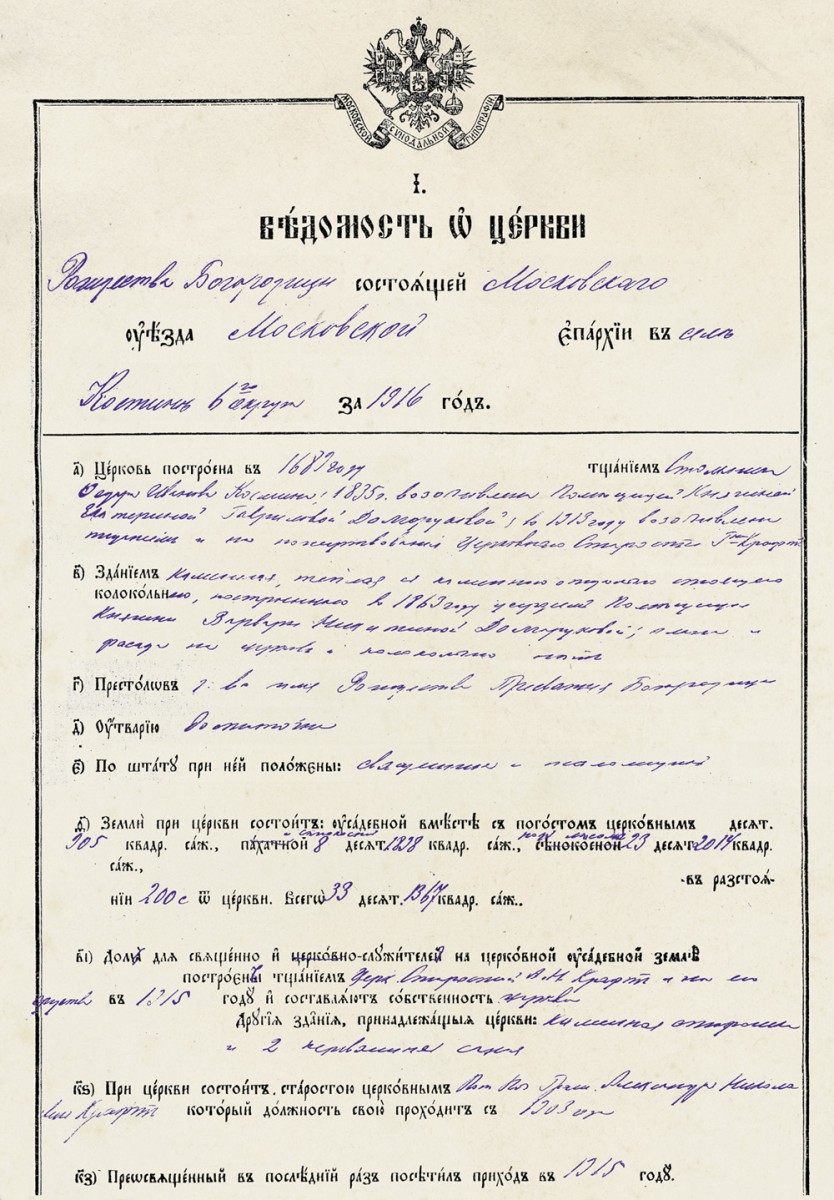 МОСКОВСКОЙ СѴНОДАЛЬНОЙ ТИПОГРАФІИ
І.
ВѢ́ДОМОСТЬ Ѡ҆ ЦЕ́РКВИ
Рождества Богородицы состоѧ́щей Московскаго
оуѣ́зда Московской є҆па́рхїи въ селѣ
Костинѣ 6го округа за 1916 го́дъ.
а҃) Це́рковь постро́ена въ 1687 году тща́нїемъ Стольника
Ѳедора 1835 г. возобновлена Помѣщицей Княгиней
Екатериной Гавриловой Долгоруковой; въ 1913 году возобновлена
и на пожертвованія Церковнаго Старосты Крафтъ
в҃) Зда́нїемъ каменная, теплая съ каменною отдѣльно стоящею
колоко́льнею, построенною въ 1863 году усердіемъ Помѣщицы
Княжны Варвары Никитиной Долгоруковой;
на церковь и колокольню нѣтъ
г҃) Престо́лѡвъ 1. во имя Рождества Пресвятыя Богородицы
д҃) Оу҆́тварїю достаточна
є҃) По шта́тꙋ при не́й поло́жены: священникъ и псаломщикъ
ѕ҃) Землѝ при це́ркви состои́тъ: оуса́дебной вмѣ́стѣ съ пого́стомъ церко́внымъ десѧт.
905 квадр. са́ж., па́хатной 8 десѧт. 1238 квадр. са́ж., сѣноко́сной 23 десѧт. 2014 квадр.
са́ж., въ разстоѧ́-
нїи 200 с ѿ це́ркви. Всегѡ̀ 33 десѧт. 1367 квадр. са́ж..
в҃і) Дома̀ для свѧще́нно и҆ церко́вно-служи́телей на церко́вной оуса́дебной землѣ̀
постро́ены тща́нїемъ Церк. Старостой А. Н. Крафтъ и на его
средства въ 1915 годꙋ и҆ составлѧ́ютъ со́бственность церкви
Дрꙋгі́ѧ зда̑нїѧ, принадлежа́щыѧ це́ркви: каменная сторожка
и 2 сарая
к҃ѕ) При це́ркви состои́тъ ста́ростою церко́внымъ Пот. Поч. Граж. Александръ Никола-
евичъ Крафтъ кото́рый до́лжность свою̀ прохо́дитъ съ 1903 года
к҃з) Преѡсвѧще́нный въ послѣ́днїй ра́зъ посѣти́лъ прихо́дъ въ 1915 годꙋ̀.